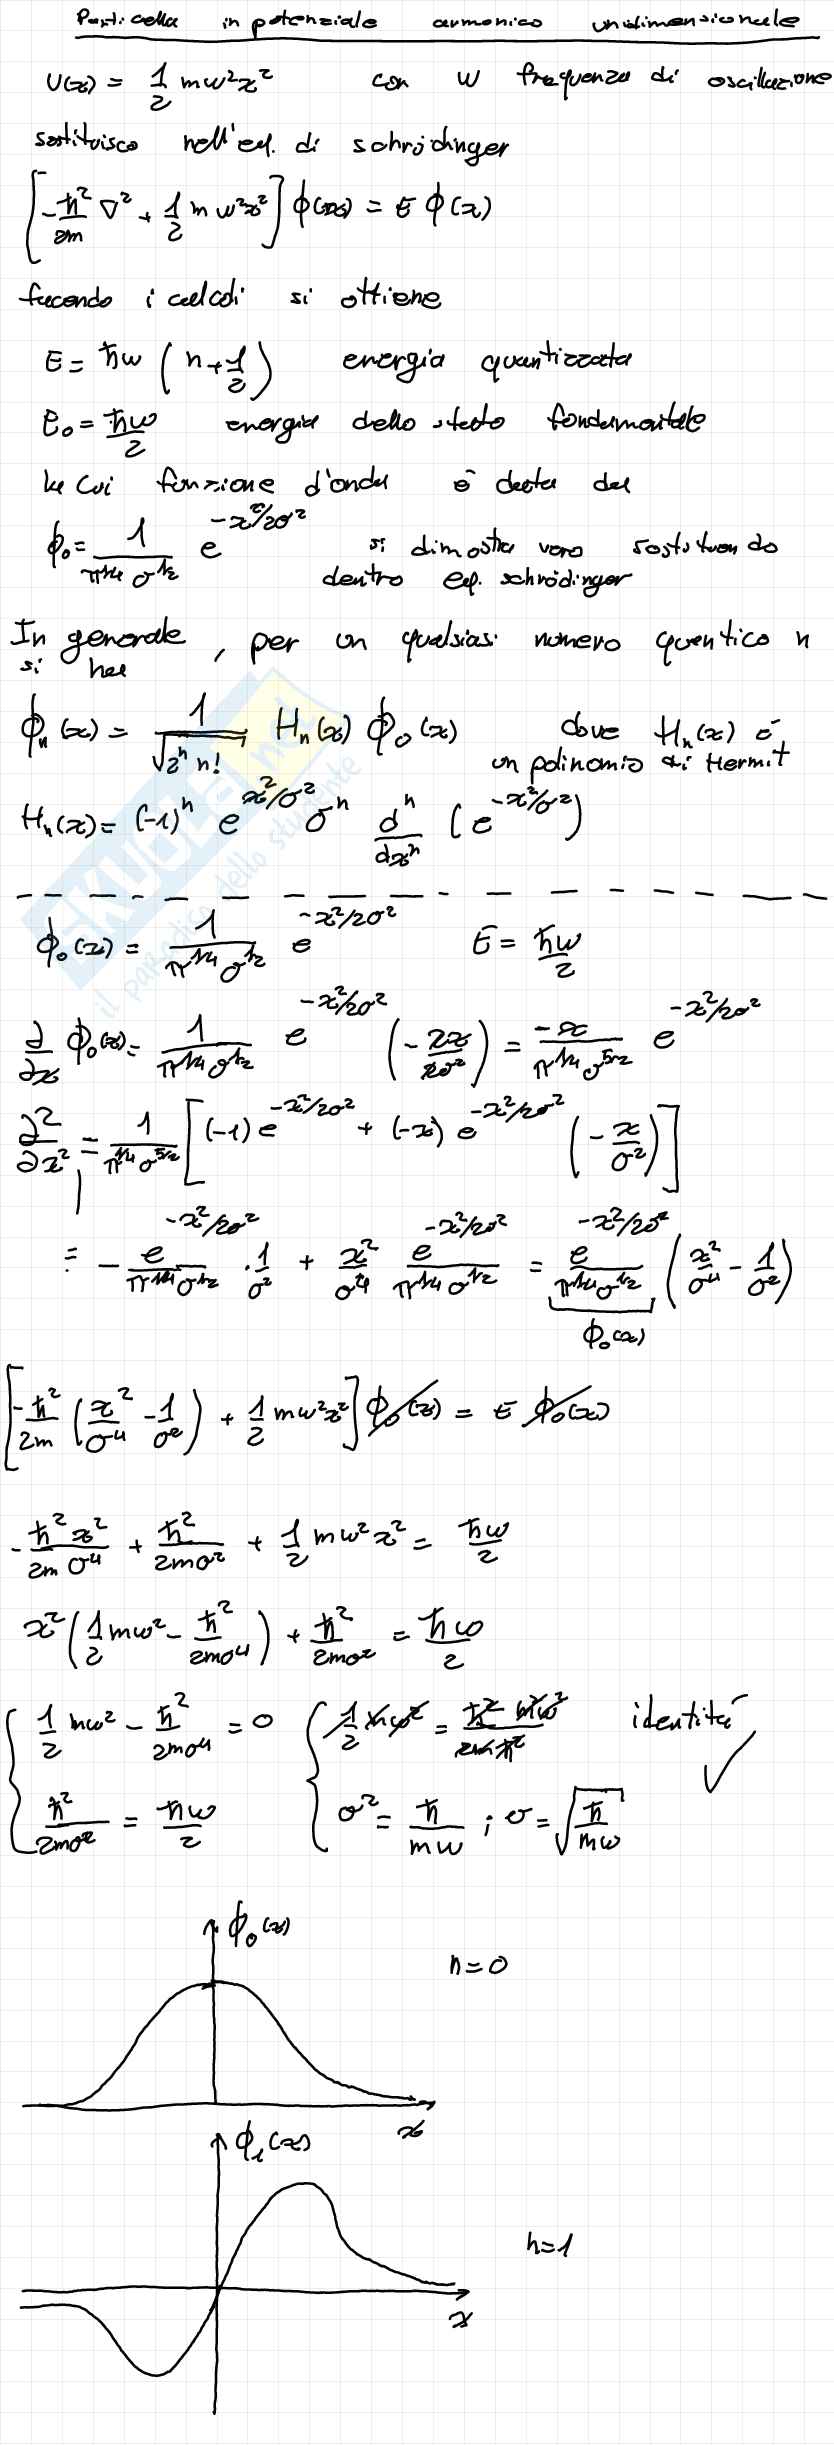 Particella in potenziale armonico unidimensionale
U(x) = 1/2 mω²x² con ω frequenza di oscillazione
sostituisco nell'eq. di schrödinger
[-ℏ²/2m ∇² + 1/2 m ω²x²] ϕ(x) = E ϕ(x)
facendo i calcoli si ottiene
E = ℏω (n + 1/2) energia quantizzata
E₀ = ℏω/2 energia dello stato fondamentale
la cui funzione d'onda è data da
ϕ₀ = 1/(π^1/4 σ^1/2) e^(-x²/2σ²) si dimostra vero sostituendo
dentro eq. schrödinger
In generale, per un qualsiasi numero quantico n
si ha
ϕₙ(x) = 1/√(2ⁿ n!) Hₙ(x) ϕ₀(x) dove Hₙ(x) è
un polinomio di Hermit
Hₙ(x) = (-1)ⁿ e^(x²/σ²) σⁿ dⁿ/dxⁿ (e^(-x²/σ²))
SKUOLA.net
il paradiso dello studente
ϕ₀(x) = 1/(π^1/4 σ^1/2) e^(-x²/2σ²) E = ℏω/2
∂/∂x ϕ₀(x) = 1/(π^1/4 σ^1/2) e^(-x²/2σ²) (-2x/2σ²) = -x/(π^1/4 σ^5/2) e^(-x²/2σ²)
∂²/∂x² = 1/(π^1/4 σ^5/2) [(-1) e^(-x²/2σ²) + (-x) e^(-x²/2σ²) (-x/σ²)]
= - e^(-x²/2σ²)/(π^1/4 σ^1/2) · 1/σ² + x²/σ⁴ e^(-x²/2σ²)/(π^1/4 σ^1/2) = e^(-x²/2σ²)/(π^1/4 σ^1/2) (x²/σ⁴ - 1/σ²)
ϕ₀(x)
[-ℏ²/2m (x²/σ⁴ - 1/σ²) + 1/2 mω²x²] ϕ₀(x) = E ϕ₀(x)
-ℏ²x²/2mσ⁴ + ℏ²/2mσ² + 1/2 mω²x² = ℏω/2
x² (1/2 mω² - ℏ²/2mσ⁴) + ℏ²/2mσ² = ℏω/2
{ 1/2 mω² - ℏ²/2mσ⁴ = 0 { 1/2 mω² = ℏ² m²ω²/2mℏ² identità ✓
ℏ²/2mσ² = ℏω/2 σ² = ℏ/mω ; σ = √(ℏ/mω)
ϕ₀(x)
n=0
x
ϕ₁(x)
n=1
x